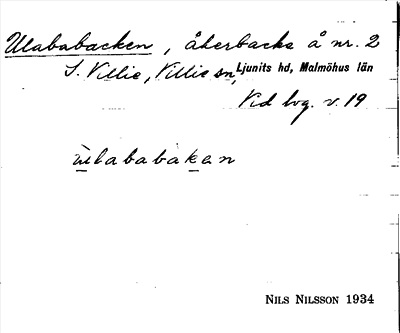 Ulababacken, åkerbacke å nr. 2
S. Villie, Villie sn, Ljunits hd, Malmöhus län
Vid bvg. v. 19
ùlababàken
NILS NILSSON 1934